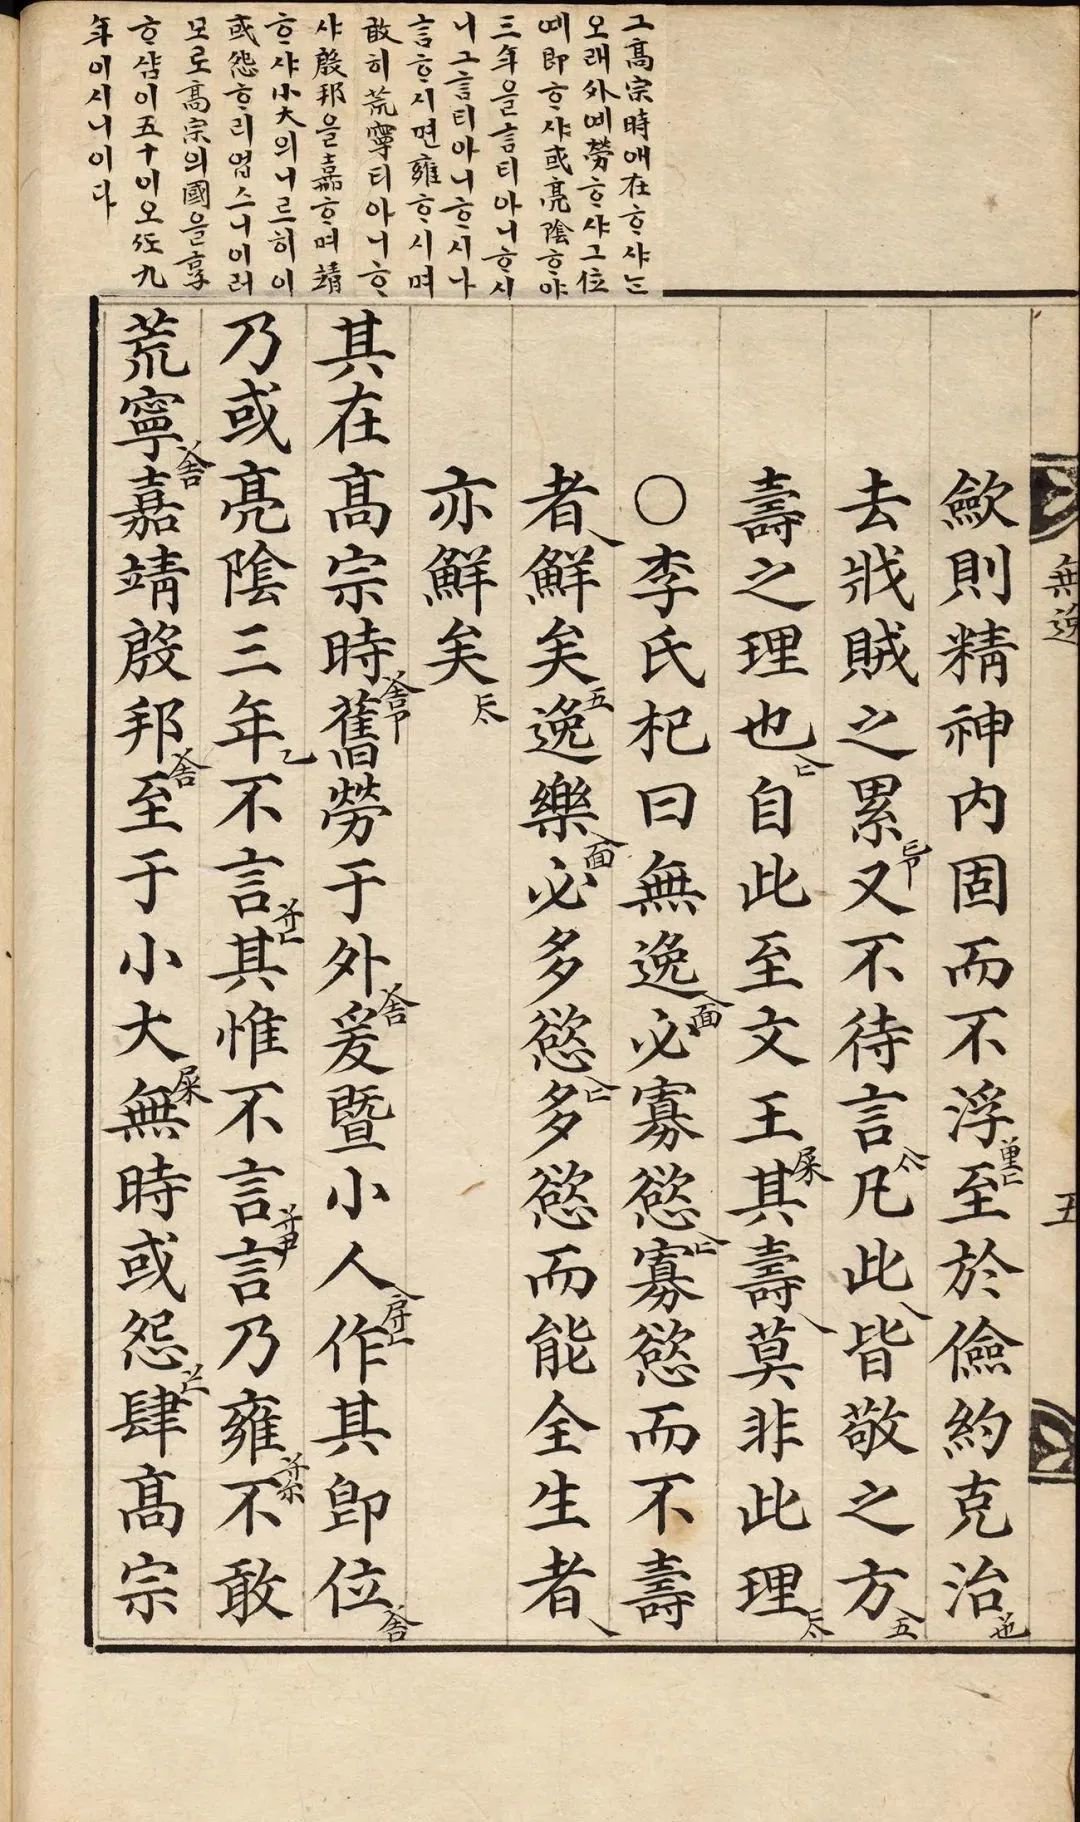 그高宗時애在ᄒᆞ샤ᄂᆞᆫ
오래外예勞ᄒᆞ샤그位
예即ᄒᆞ샤或亮陰ᄒᆞ야
三年을言티아니ᄒᆞ시
니그言티아니ᄒᆞ시나
言ᄒᆞ시면雍ᄒᆞ시며
敢히荒寧티아니ᄒᆞ
샤殷邦을嘉ᄒᆞ며靖
ᄒᆞ샤小大의니르히이
或怨ᄒᆞ리업스니이러
모로高宗의國을享
ᄒᆞ샴이五十이오ᄯᅩ九
年이시니이다
無逸
五
歛則精神內固而不浮至於儉約克治
去戕賊之累又不待言凡此皆敬之方
壽之理也自此至文王其壽莫非此理
○李氏杞曰無逸必寡慾寡慾而不壽
者鮮矣逸樂必多慾多慾而能全生者
亦鮮矣
其在高宗時舊勞于外爰暨小人作其卽位
乃或亮陰三年不言其惟不言言乃雍不敢
荒寧嘉靖殷邦至于小大無時或怨肆高宗